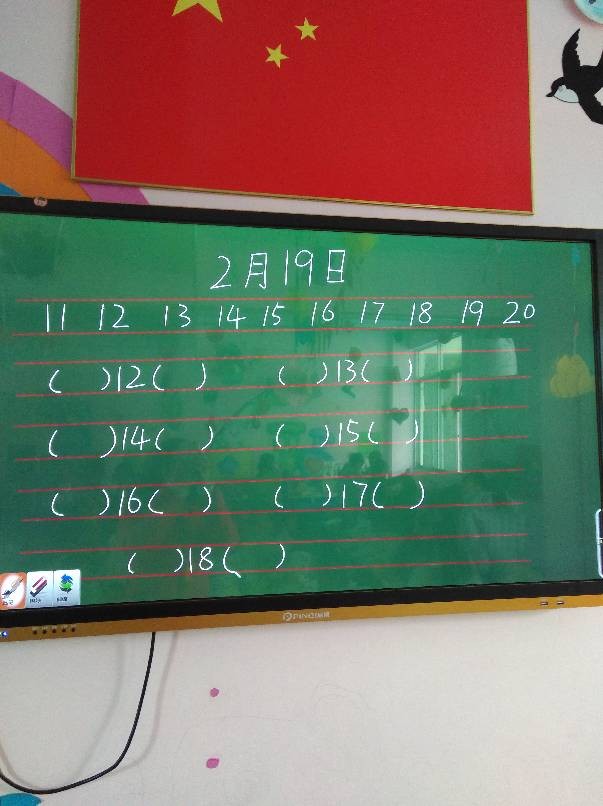 2月19日
11 12 13 14 15 16 17 18 19 20
( )12( ) ( )13( )
( )14( ) ( )15( )
( )16( ) ( )17( )
( )18( )